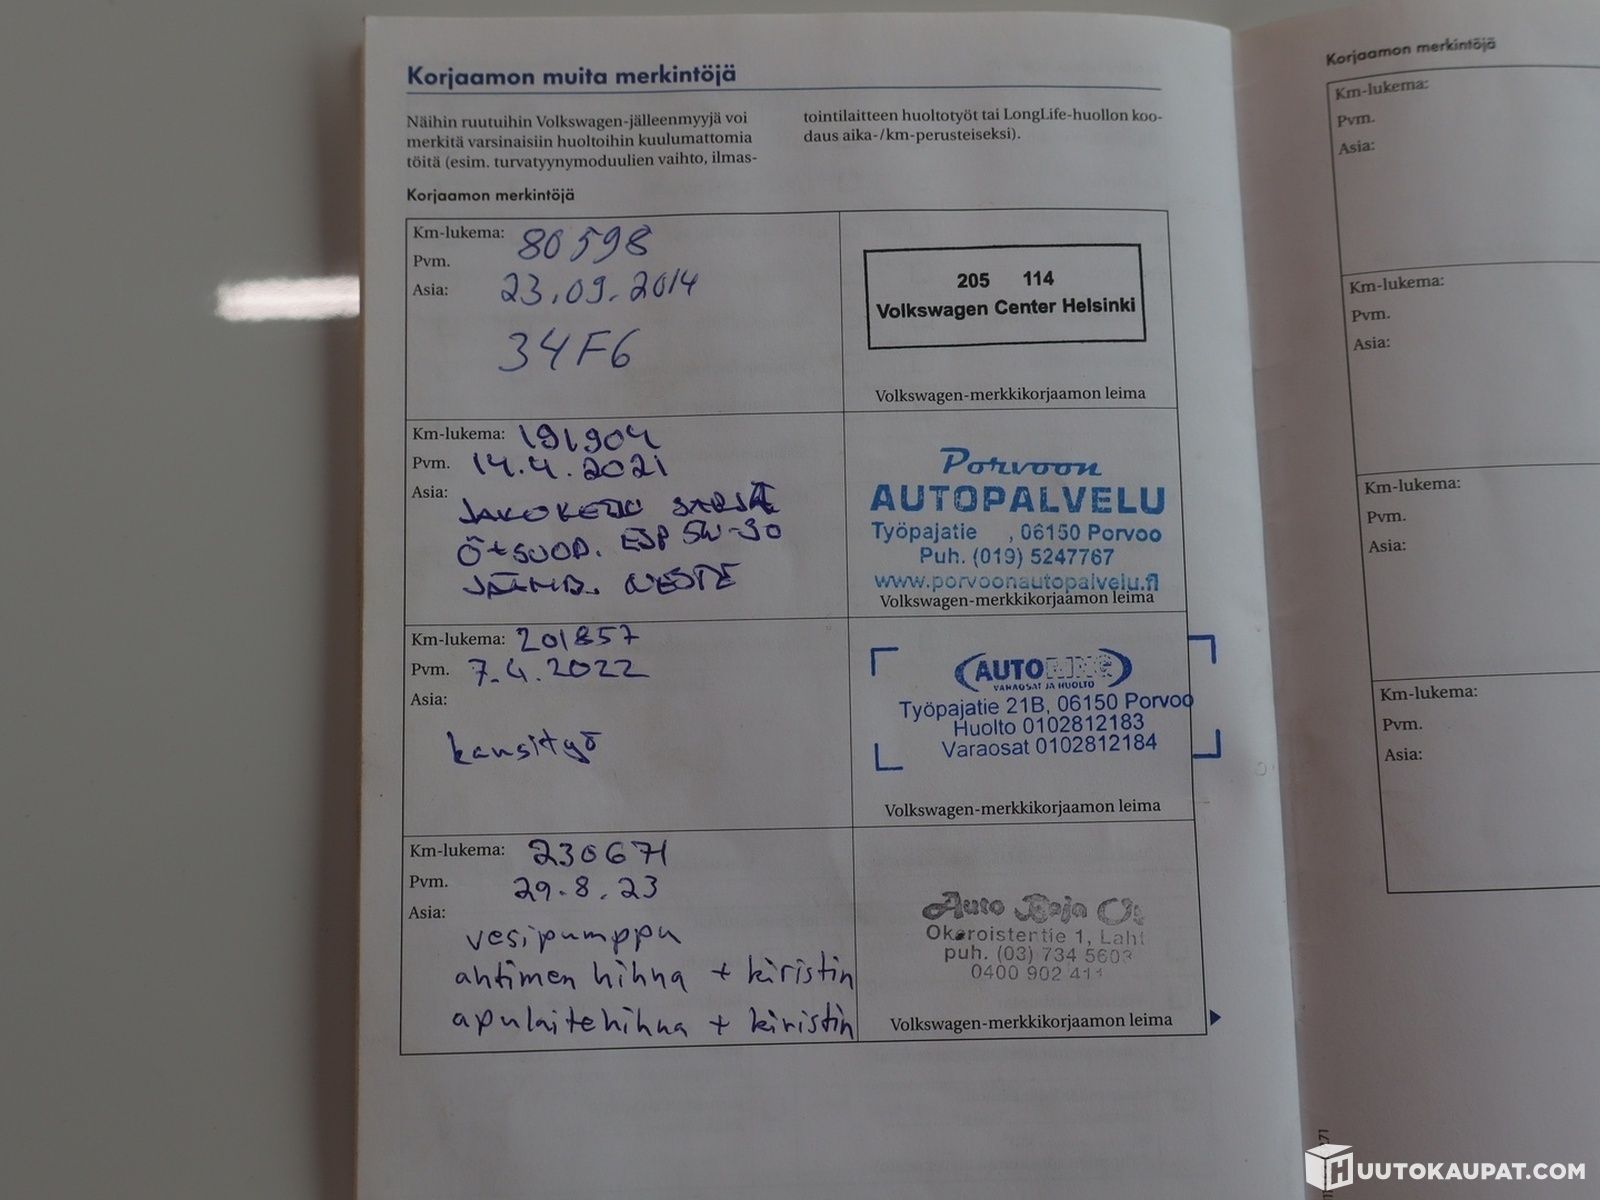 Korjaamon muita merkintöjä
Näihin ruutuihin Volkswagen-jälleenmyyjä voi
merkitä varsinaisiin huoltoihin kuulumattomia
töitä (esim. turvatyynymoduulien vaihto, ilmas-
tointilaitteen huoltotyöt tai LongLife-huollon koo-
daus aika-/km-perusteiseksi).
Korjaamon merkintöjä
Km-lukema: 80598
Pvm. 23.09.2014
Asia: 34F6
205 114
Volkswagen Center Helsinki
Volkswagen-merkkikorjaamon leima
Km-lukema: 191904
Pvm. 14.4.2021
Asia: JAKOKETJU SARJA
Ö+SUOD. ESP 5W-30
JÄÄHD. NESTE
Porvoon
AUTOPALVELU
Työpajatie , 06150 Porvoo
Puh. (019) 5247767
www.porvoonautopalvelu.fi
Volkswagen-merkkikorjaamon leima
Km-lukema: 201857
Pvm. 7.4.2022
Asia:
kansityö
AUTO
VARAOSAT JA HUOLTO
Työpajatie 21B, 06150 Porvoo
Huolto 0102812183
Varaosat 0102812184
Volkswagen-merkkikorjaamon leima
Km-lukema: 230671
Pvm. 29.8.23
Asia:
vesipumppu
ahtimen hihna + kiristin
apulaitehihna + kiristin
Auto
Okeroistentie 1, Laht
puh. (03) 734 5603
0400 902 411
Volkswagen-merkkikorjaamon leima
Korjaamon merkintöjä
Km-lukema:
Pvm.
Asia:
Km-lukema:
Pvm.
Asia:
Km-lukema:
Pvm.
Asia:
Km-lukema:
Pvm.
Asia:
HUUTOKAUPAT.COM